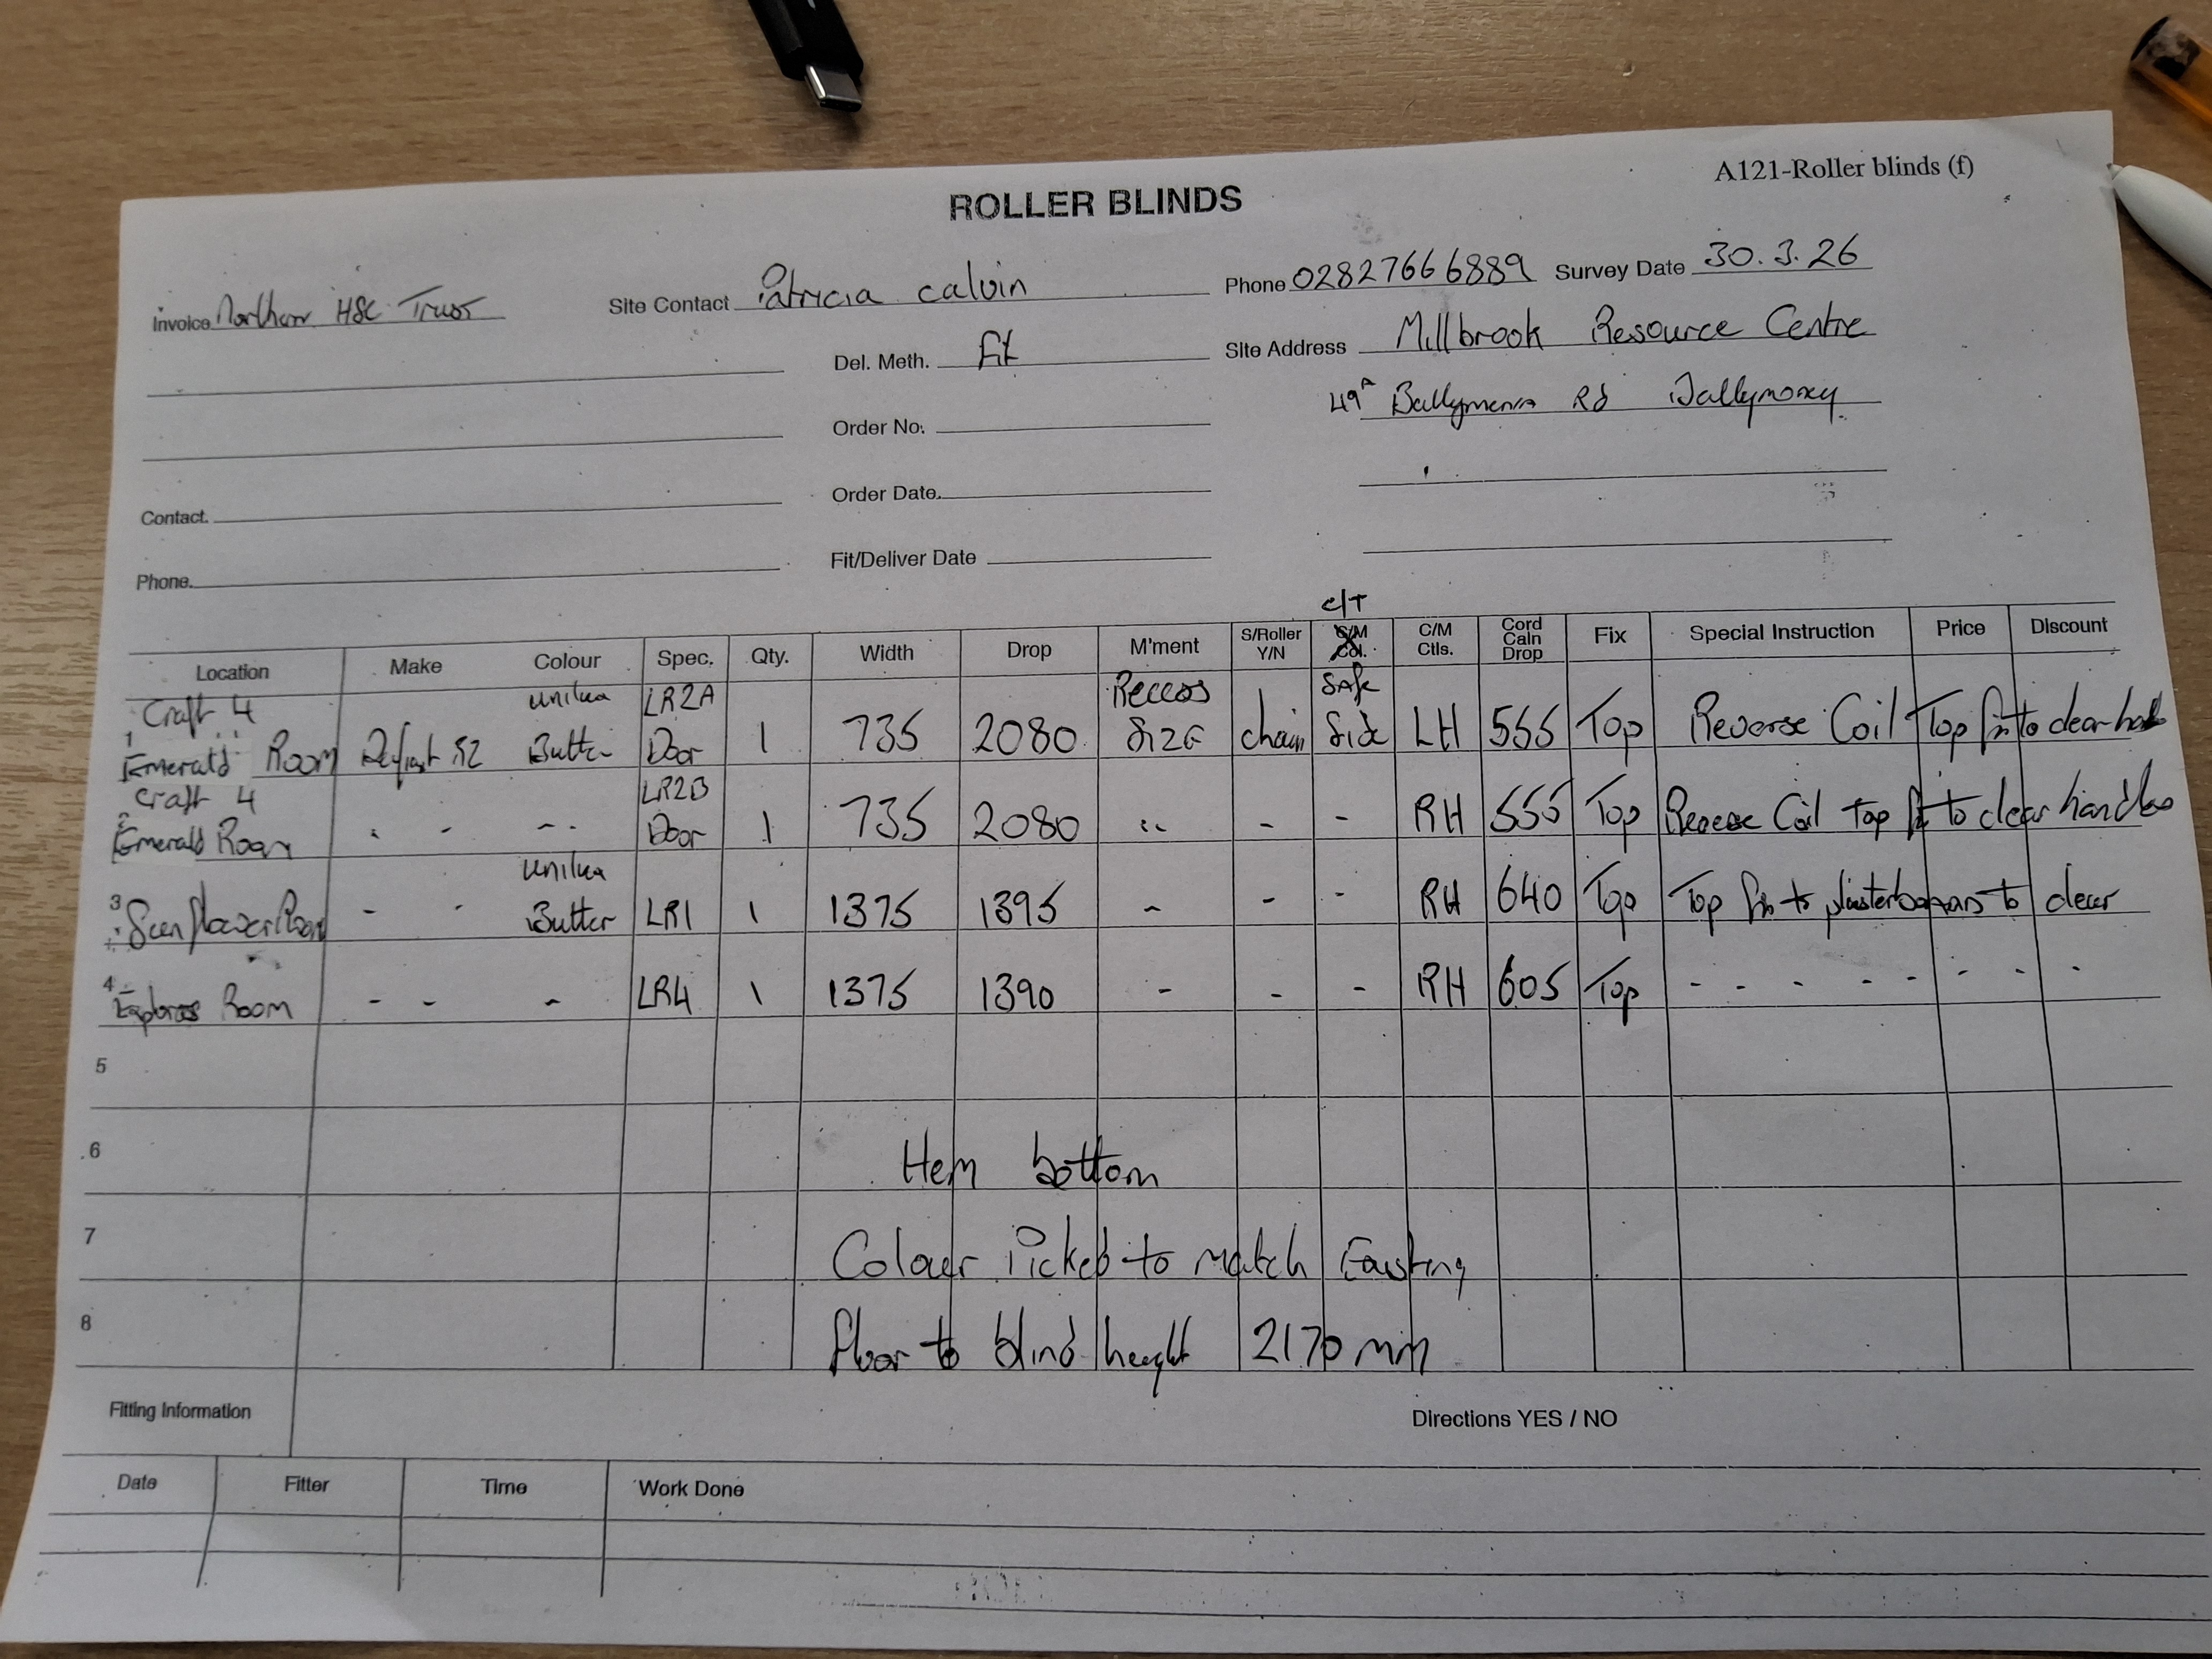 A121-Roller blinds (f)
ROLLER BLINDS
Invoice Northern HSC Trust
Site Contact Patricia Calvin
Phone 02827666889 Survey Date 30.3.26
Del. Meth. Fit
Site Address Millbrook Resource Centre
49A Ballymena Rd Ballymoney
Order No.
Order Date.
Contact.
Fit/Deliver Date
Phone.
C/T
Location Make Colour Spec. Qty. Width Drop M'ment S/Roller Y/N S/M Col. C/M Ctls. Cord Caln Drop Fix Special Instruction Price Discount
Craft 4 Unilux LR2A Recess Safe
1 Emerald Room Butter Door 1 735 2080 Size chain Side LH 555 Top Reverse Coil Top fix to clear
Craft 4 LR2B
2 Emerald Room - - - Door 1 735 2080 " - - RH 555 Top Reverse Coil top fix to clear handles
Unilux
3 Sunflower Room - - Butter LR1 1 1375 1395 - - - RH 640 Top Top fix to to clear
4 Room - - - LR4 1 1375 1390 - - - RH 605 Top - - - - - - - -
5
6 Hem bottom
7 Colour Picked to match Existing
8 floor to blind height 2170 mm
Fitting Information
Directions YES / NO
Date Fitter Time Work Done